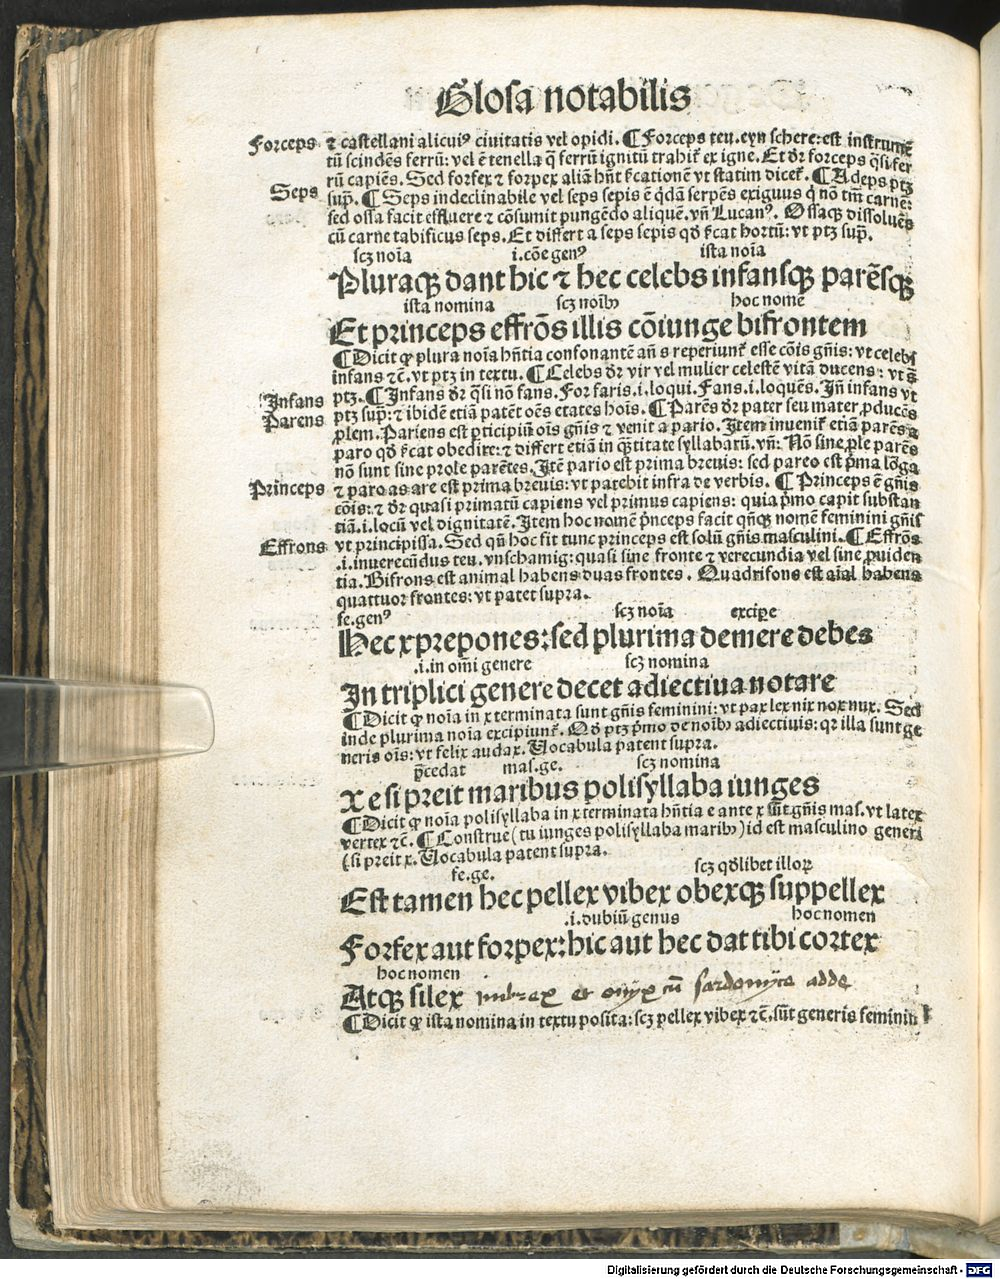 Glosa notabilis
Forceps
⁊ castellani alicuiꝰ ciuitatis vel opidi. ¶ Forceps teu. eyn schere: est instrumē
tū scindēs ferrū: vel ē tenella q̄ ferrū ignitū trahit̄ ex igne. Et dr̄ forceps q̄si fer
rū capiēs. Sed forfex ⁊ forpex aliā hn̄t ſcationē vt statim dicet̄. ¶ Adeps ptꝫ
Seps
sup̄. ¶ Seps indeclinabile vel seps sepis ē q̄dā serpēs exiguus q̄ nō tm̄ carnē:
sed ossa facit effluere ⁊ cōsumit pungēdo aliquē. vn̄ Lucanꝰ. Ossaqꝫ dissoluēs
cū carne tabificus seps. Et differt a seps sepis qd̄ ſcat hortū: vt ptꝫ sup̄.
scꝫ noīa i. cōe genꝰ ista noīa
Pluraqꝫ dant hic ⁊ hec celebs infansqꝫ parēsqꝫ
ista nomina scꝫ noībꝰ hoc nomē
Et princeps effrōs illis cōiunge bifrontem
¶ Dicit ꝙ plura noīa hn̄tia consonantē an̄ s reperiunt̄ esse cōis gn̄is: vt celebs
infans ⁊c̄. vt ptꝫ in textu. ¶ Celebs dr̄ vir vel mulier celestē vitā ducens: vt s̄
Infans
ptꝫ. ¶ Infans dr̄ q̄si nō fans. For faris .i. loqui. Fans .i. loquēs. In̄ infans vt
Parens
ptꝫ sup̄: ⁊ ibidē etiā patēt oēs etates hoīs. ¶ Parēs dr̄ pater seu mater ꝓducēs
ꝓlem. Pariens est ꝑticipiū oīs gn̄is ⁊ venit a pario. Item inuenit̄ etiā parēs a
paro qd̄ ſcat obedire: ⁊ differt etiā in q̄titate syllabarū. vn̄: Nō sine ꝓle parēs
nō sunt sine prole parētes. Itē pario est prima breuis: sed pareo est p̄ma lōga
Princeps
⁊ paro as are est prima breuis: vt patebit infra de verbis. ¶ Princeps ē gn̄is
cōis: ⁊ dr̄ quasi primatū capiens vel primus capiens: quia p̄mo capit substan
tiā .i. locū vel dignitatē. Item hoc nomē p̄nceps facit qn̄qꝫ nomē feminini gn̄is
Effrons
vt principissa. Sed qn̄ hoc fit tunc princeps est solū gn̄is masculini. ¶ Effrōs
.i. inuerecūdus teu. vnschamig: quasi sine fronte ⁊ verecundia vel sine ꝓuiden
tia. Bifrons est animal habens duas frontes. Quadrifons est aīal habens
quattuor frontes: vt patet supra.
fe. genꝰ scꝫ noīa excipe
Hec x prepones: sed plurima demere debes
.i. in om̄i genere scꝫ nomina
In triplici genere decet adiectiua notare
¶ Dicit ꝙ noīa in x terminata sunt gn̄is feminini: vt pax lex nix nox nux. Sed
inde plurima noīa excipiunt̄. Qd̄ ptꝫ p̄mo de noībꝰ adiectiuis: qꝛ illa sunt ge
neris oīs: vt felix audax. Uocabula patent supra.
p̄cedat mas. ge. scꝫ nomina
X e si preit maribus polisyllaba iunges
¶ Dicit ꝙ noīa polisyllaba in x terminata hn̄tia e ante x sūt gn̄is mas. vt latex
vertex ⁊c̄. ¶ Construe (tu iunges polisyllaba maribꝰ) id est masculino generi
(si preit x. Uocabula patent supra.
fe. ge. scꝫ qd̄libet illoꝝ
Est tamen hec pellex vibex obexqꝫ suppellex
.i. dubiū genus hoc nomen
Forfex aut forpex: hic aut hec dat tibi cortex
hoc nomen
Atqꝫ silex imbrex et onyx cū sardonyce adde
¶ Dicit ꝙ ista nomina in textu posita: scꝫ pellex vibex ⁊c̄. sūt generis feminini
Digitalisierung gefördert durch die Deutsche Forschungsgemeinschaft - DFG